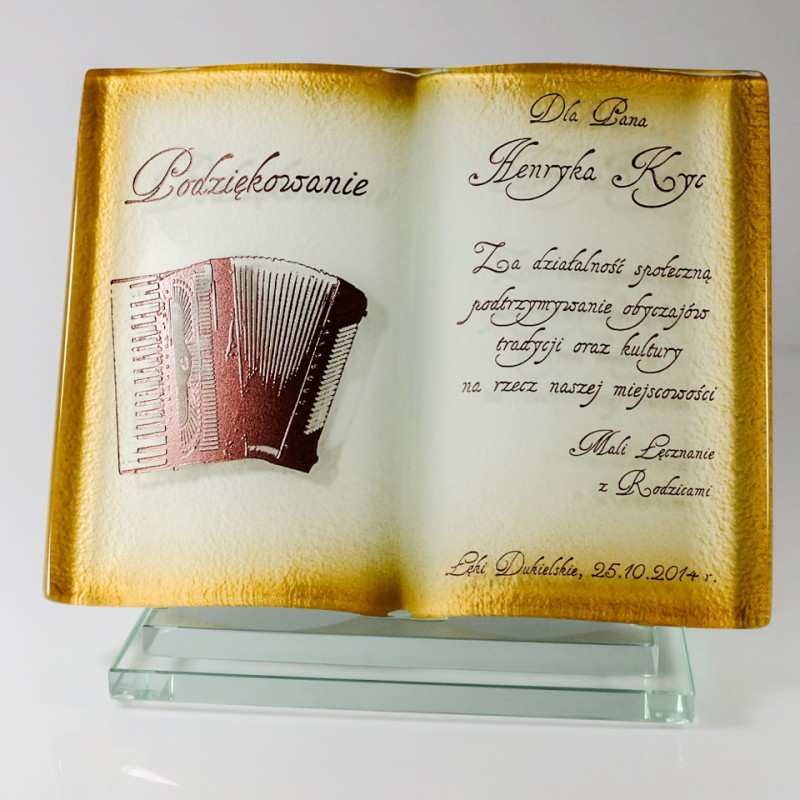 Podziękowanie
Dla Pana
Henryka Kyc
Za działalność społeczną
podtrzymywanie obyczajów
tradycji oraz kultury
na rzecz naszej miejscowości
Mali Łęcznanie
z Rodzicami
Łęki Dukielskie, 25.10.2014 r.